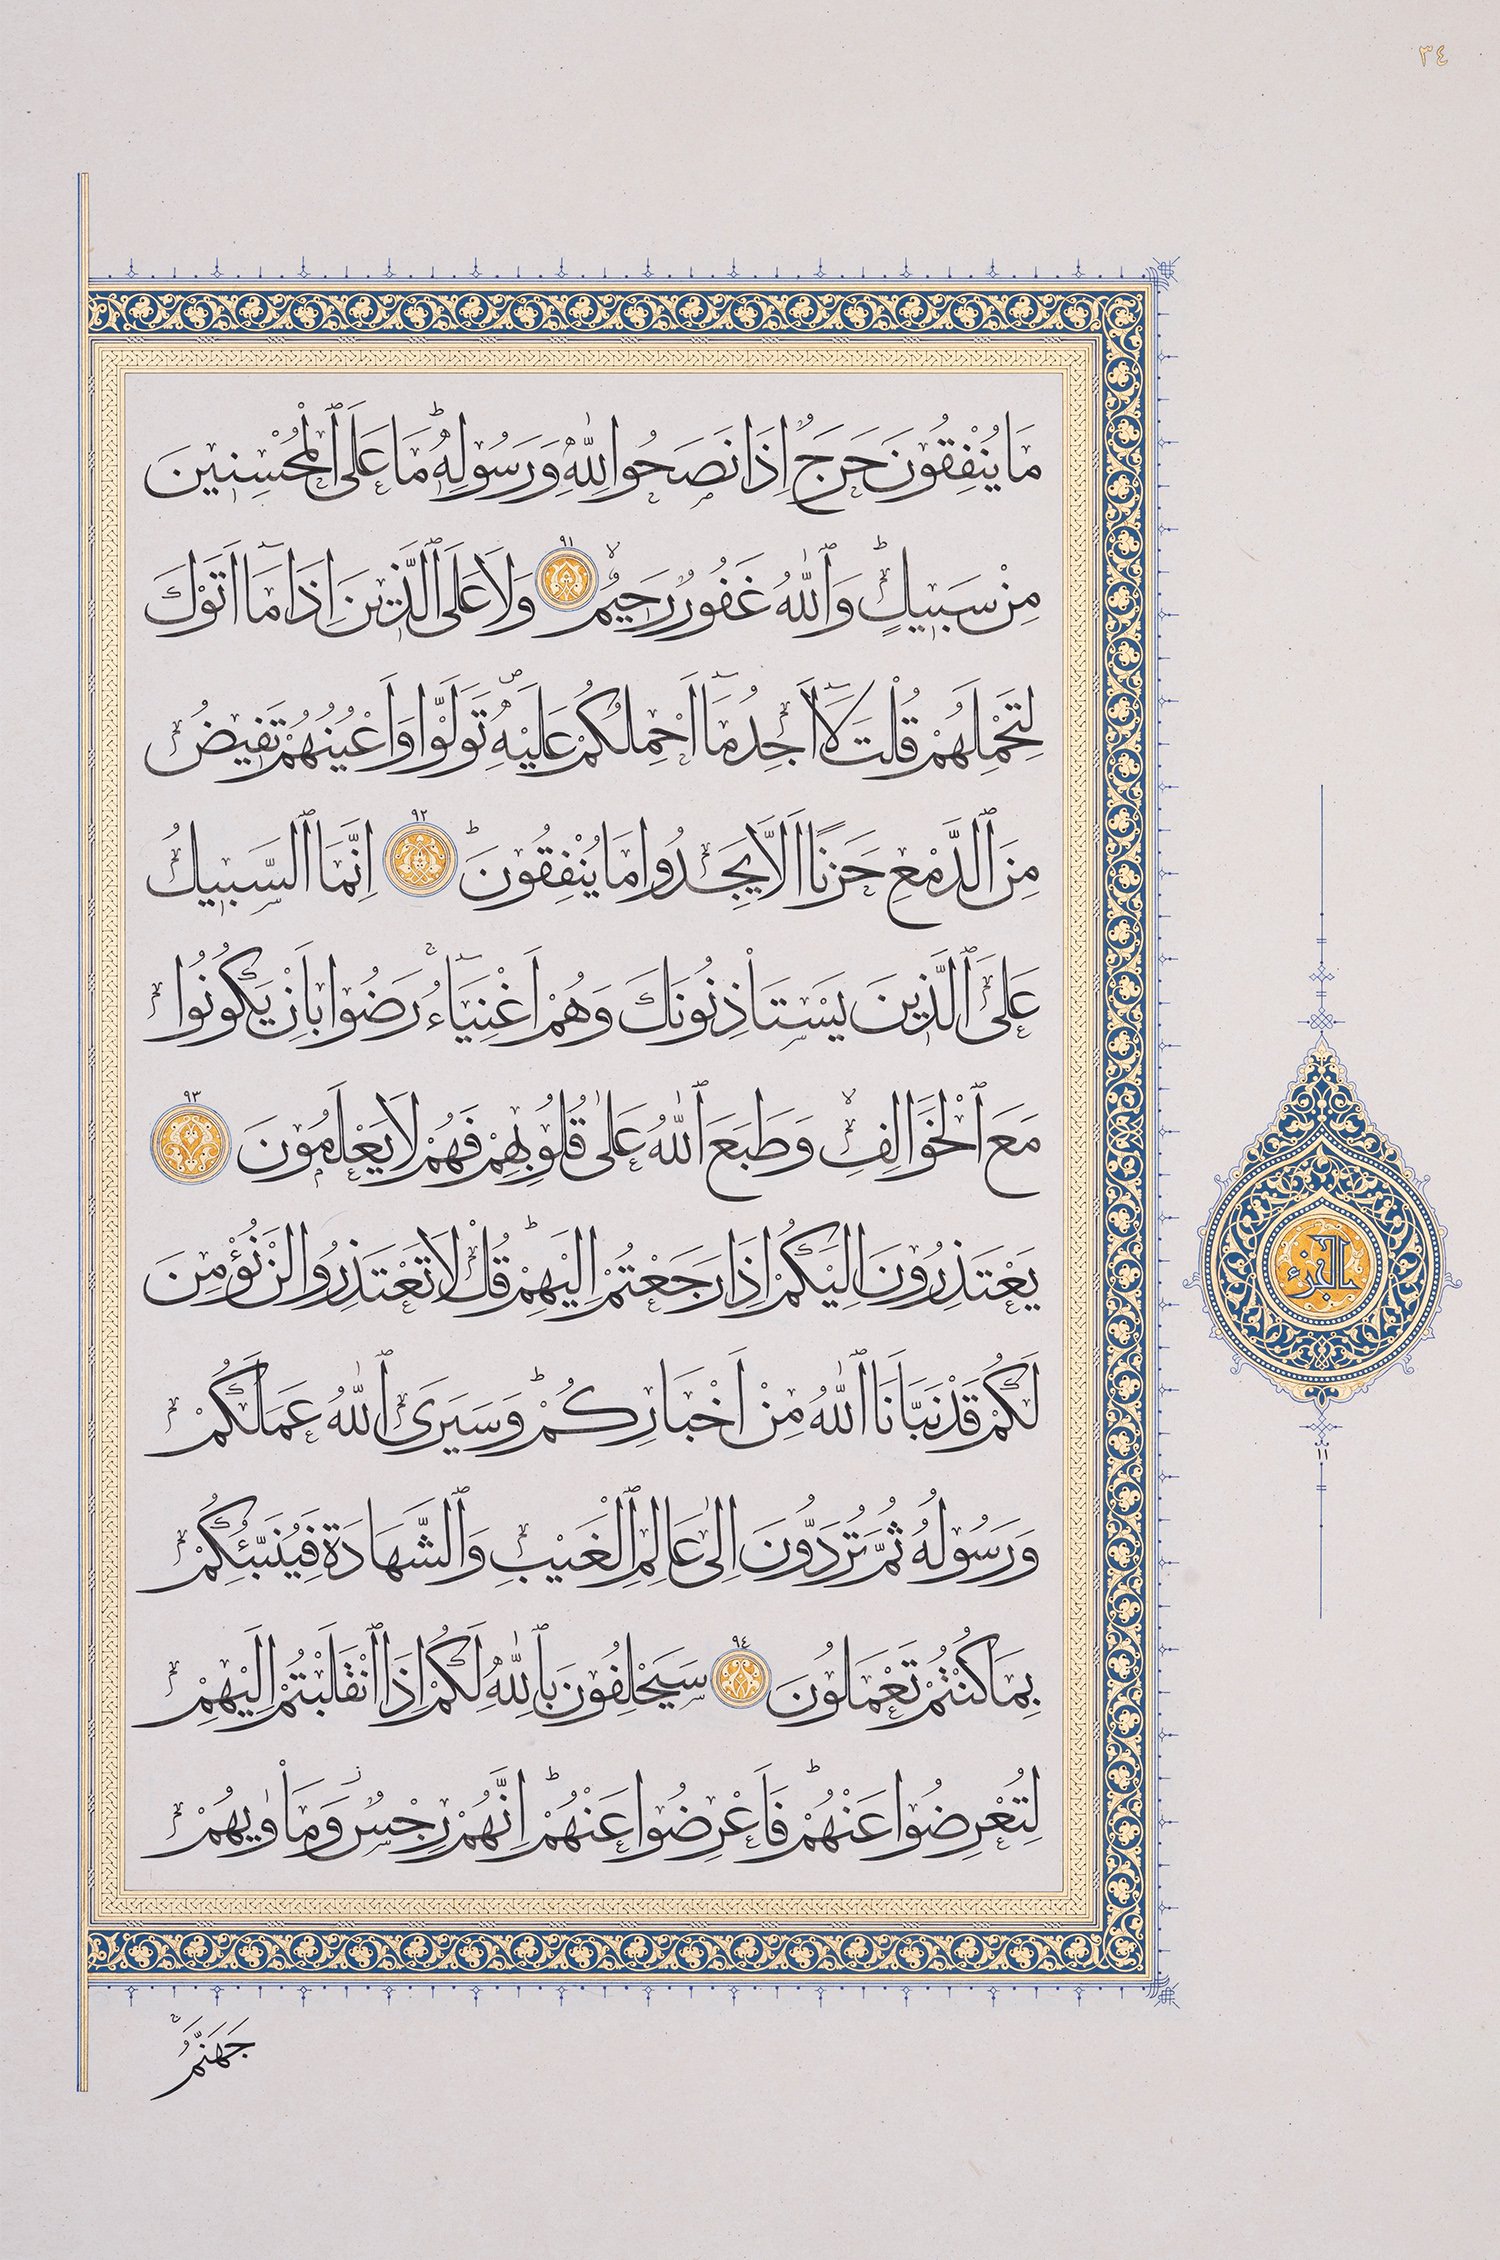 ٣٤
مَا يُنْفِقُونَ حَرَجٌ اِذَا نَصَحُوا لِلّٰهِ وَرَسُولِهِ مَا عَلَى ٱلْمُحْسِنِينَ
مِنْ سَبِيلٍ وَٱللّٰهُ غَفُورٌ رَحِيمٌ ٩١ وَلَا عَلَى ٱلَّذِينَ اِذَا مَٓا اَتَوْكَ
لِتَحْمِلَهُمْ قُلْتَ لَٓا اَجِدُ مَٓا اَحْمِلُكُمْ عَلَيْهِ تَوَلَّوْا وَاَعْيُنُهُمْ تَفِيضُ
مِنَ ٱلدَّمْعِ حَزَنًا اَلَّا يَجِدُوا مَا يُنْفِقُونَ ٩٢ اِنَّمَا ٱلسَّبِيلُ
عَلَى ٱلَّذِينَ يَسْتَأْذِنُونَكَ وَهُمْ اَغْنِيَٓاءُ رَضُوا بِاَنْ يَكُونُوا
مَعَ ٱلْخَوَالِفِ وَطَبَعَ ٱللّٰهُ عَلٰى قُلُوبِهِمْ فَهُمْ لَا يَعْلَمُونَ ٩٣
يَعْتَذِرُونَ اِلَيْكُمْ اِذَا رَجَعْتُمْ اِلَيْهِمْ قُلْ لَا تَعْتَذِرُوا لَنْ نُؤْمِنَ
لَكُمْ قَدْ نَبَّاَنَا ٱللّٰهُ مِنْ اَخْبَارِكُمْ وَسَيَرَى ٱللّٰهُ عَمَلَكُمْ
وَرَسُولُهُ ثُمَّ تُرَدُّونَ اِلٰى عَالِمِ ٱلْغَيْبِ وَٱلشَّهَادَةِ فَيُنَبِّئُكُمْ
بِمَا كُنْتُمْ تَعْمَلُونَ ٩٤ سَيَحْلِفُونَ بِٱللّٰهِ لَكُمْ اِذَا ٱنْقَلَبْتُمْ اِلَيْهِمْ
لِتُعْرِضُوا عَنْهُمْ فَاَعْرِضُوا عَنْهُمْ اِنَّهُمْ رِجْسٌ وَمَأْوٰيهُمْ
جَهَنَّمُ
الجزء
١١